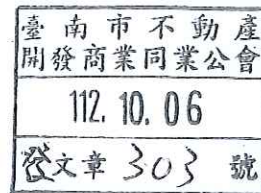 臺南市不動產
開發商業同業公會
112. 10. 06
發文章 303 號